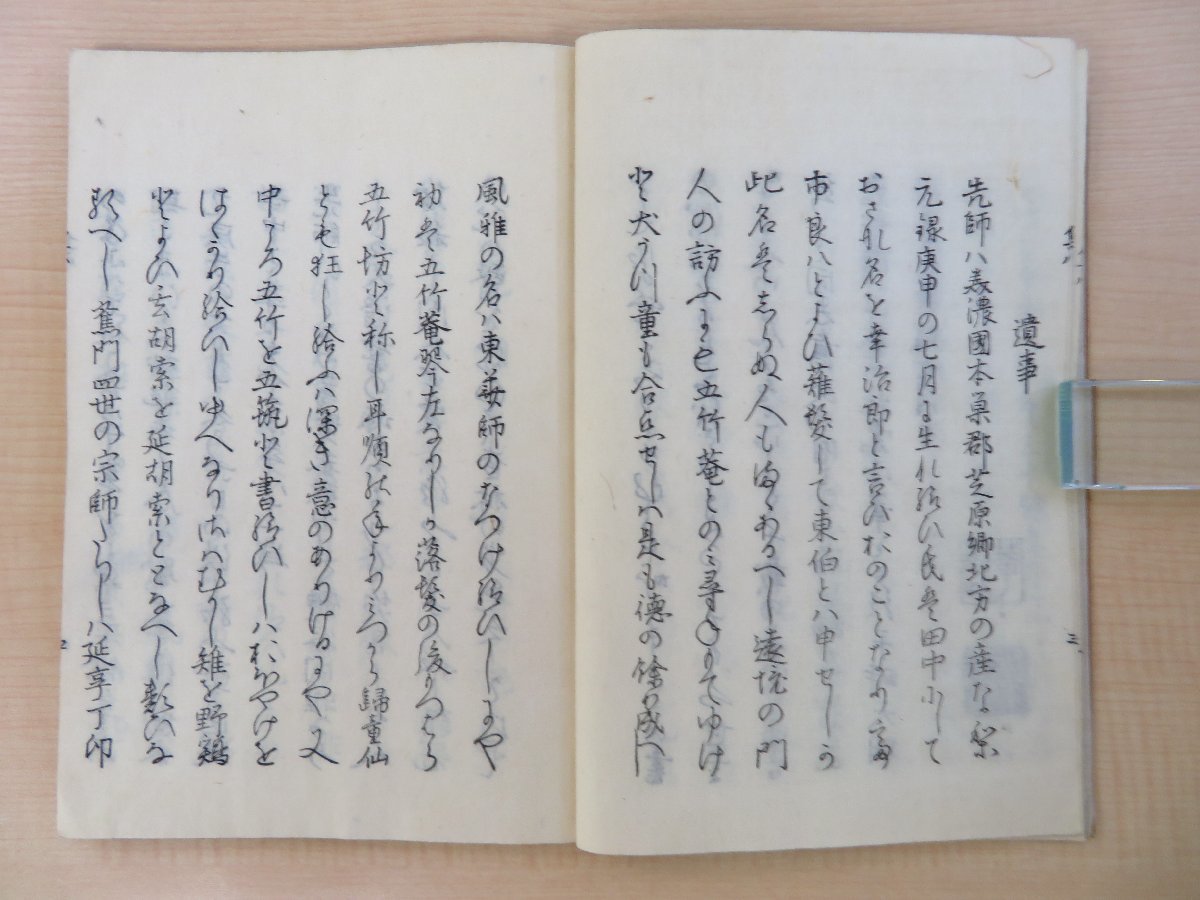 遺事
先師ハ美濃國本巣郡芝原郷北方の産なり
元録庚申の七月に生れ給ひ氏は田中にして
おさな名を幸治郎と言ひ
市良八とよひ薙髪して東伯とハ申せしか
此名はしらぬ人も あるへし遠境の門
人の訪ふにも五竹菴とのミ尋ねもてゆけ
と犬うつ童も合点せしハ是も徳の餘り成へし
風雅の名ハ東華師のなつけ給ひしにや
初は五竹菴琴左なりしか落髪の後
五竹坊と称し耳順の年よりミつから歸童仙
とも狂し給ふハ深き意のありけるにや又
中ころ五竹を五筑と書給ひしハおほやけを
はゝかり給ひしゆへなりさハむかし雉を野鶏
とよひ玄胡索を延胡索ととなへし類ひな
るへし蕉門四世の宗師たりしハ延享丁卯